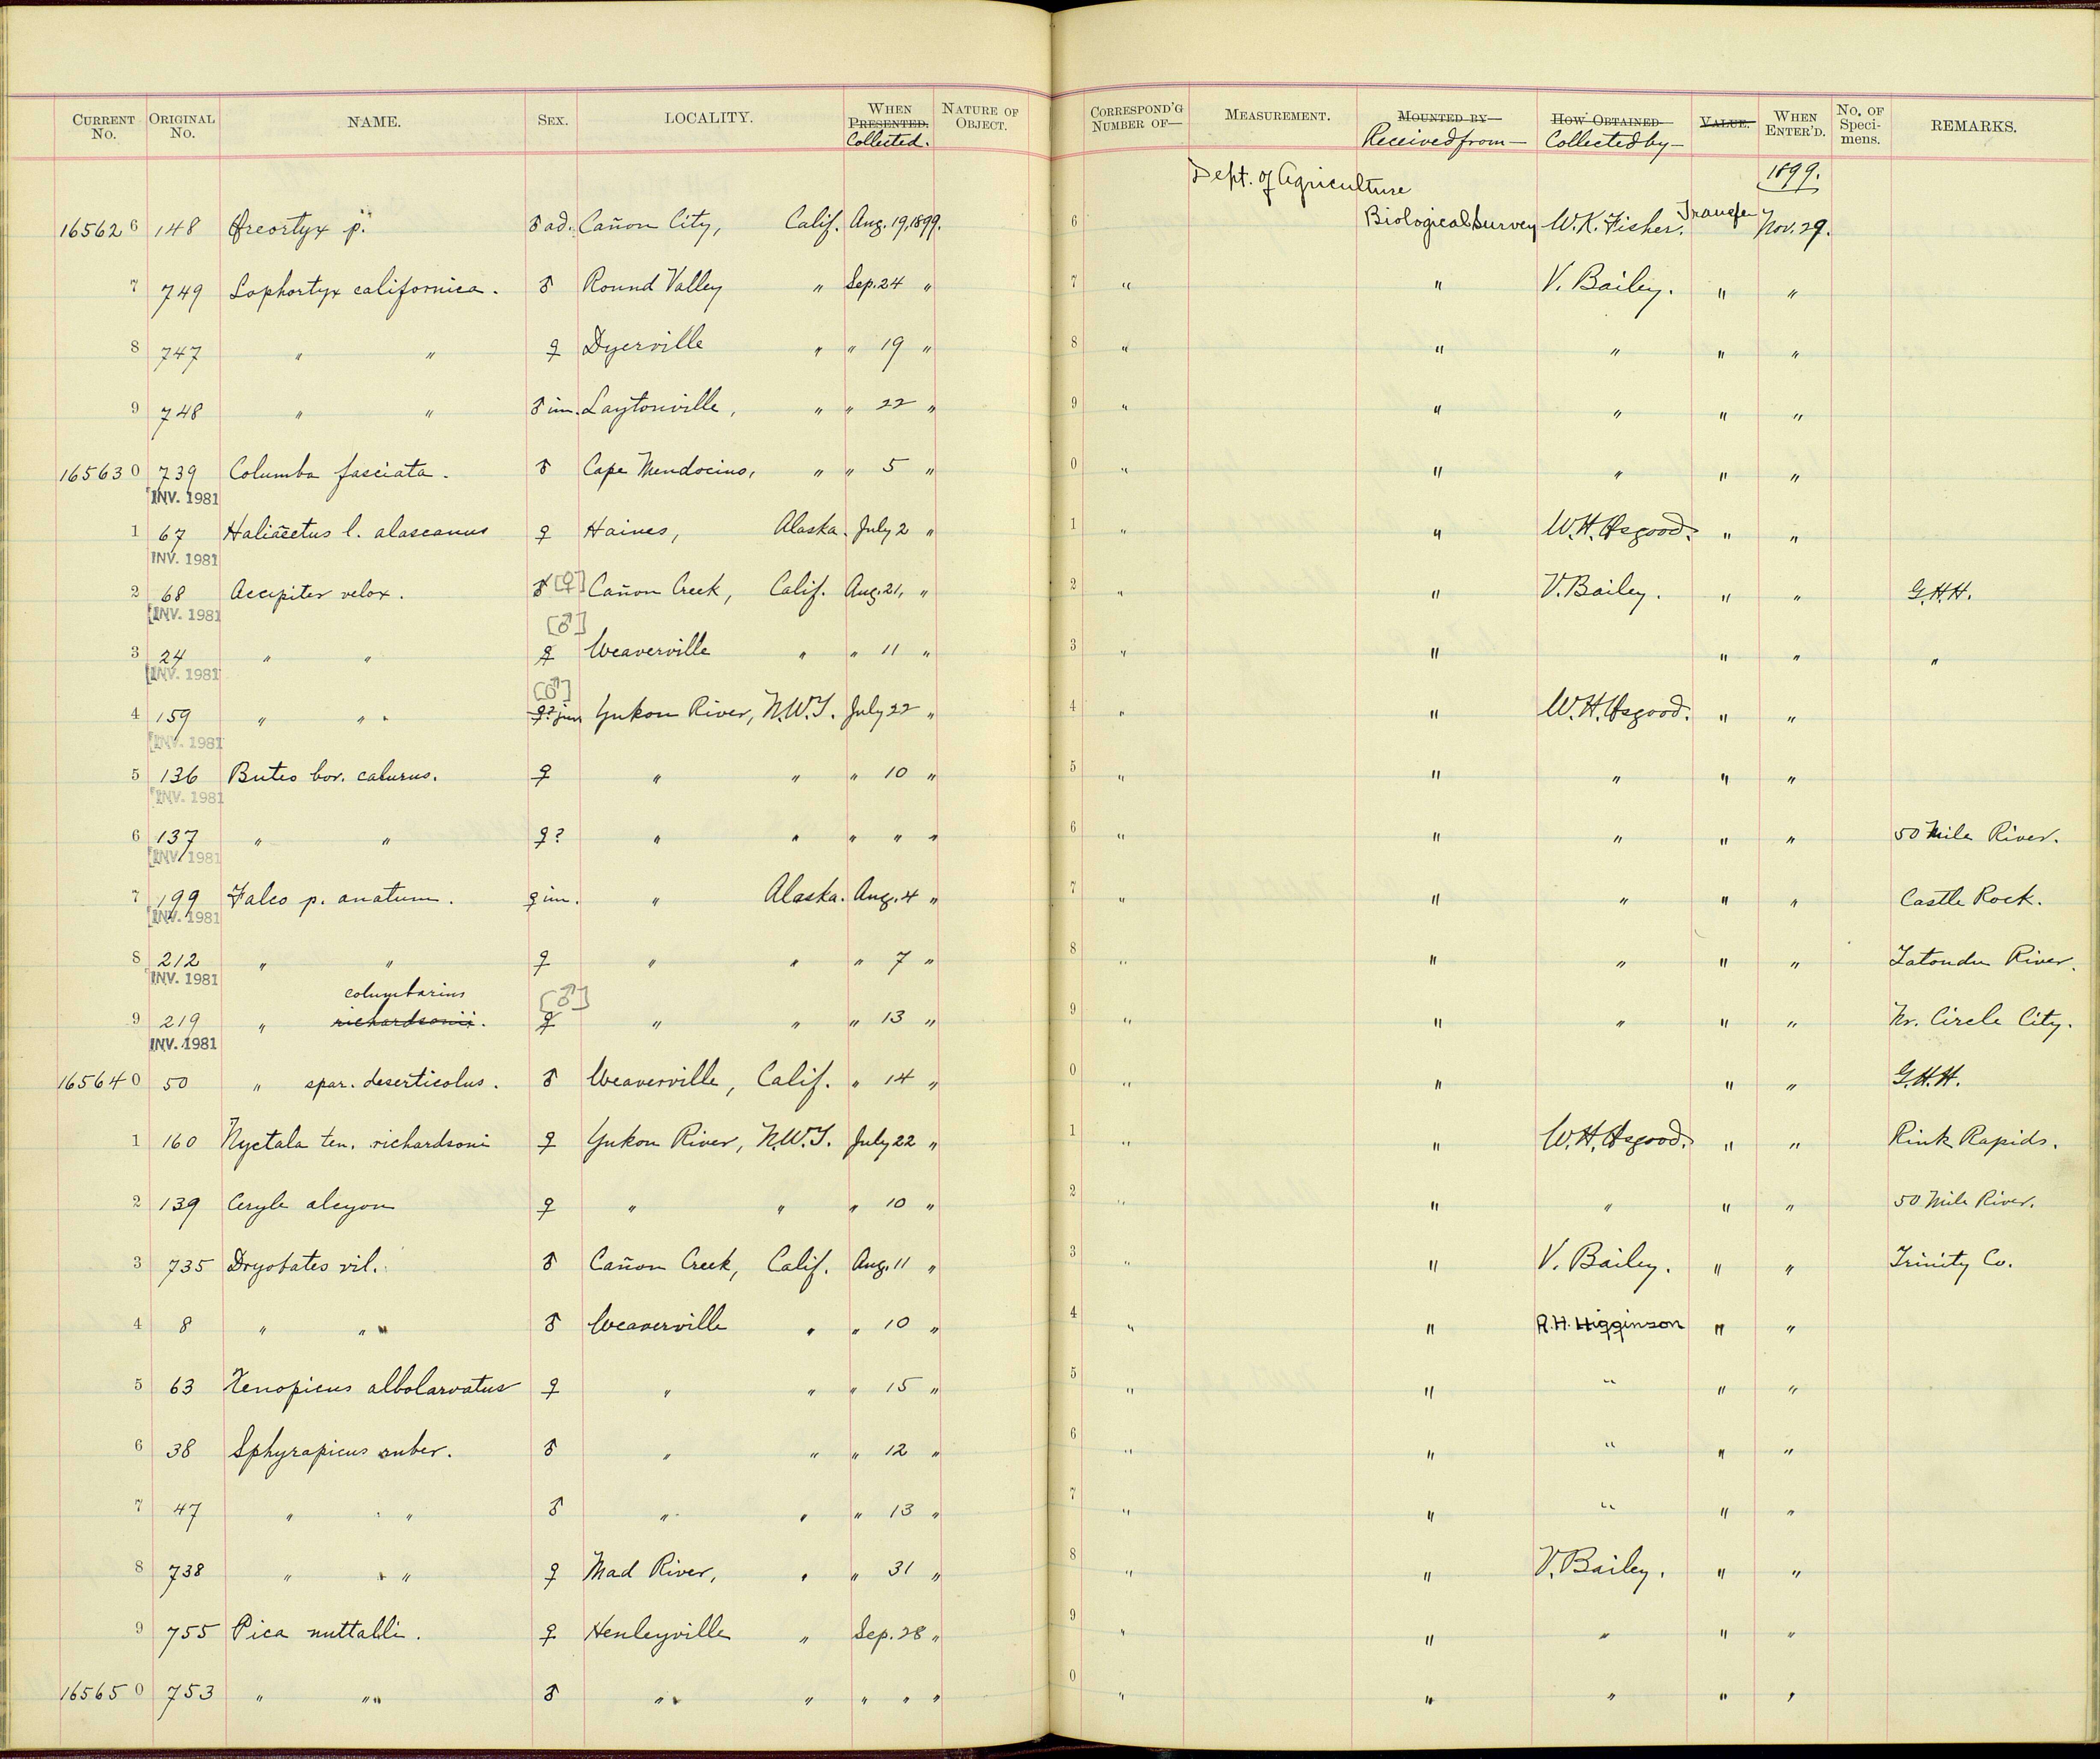 CURRENT No. ORIGINAL No. NAME. SEX. LOCALITY. WHEN PRESENTED. Collected. NATURE OF OBJECT. CORRESPOND'G NUMBER OF— MEASUREMENT. MOUNTED BY— Received from— HOW OBTAINED Collected by— VALUE. WHEN ENTER'D. No. OF Speci- mens. REMARKS.
Dept. of Agriculture 1899.
16562 6 148 Oreortyx p. ♂ ad. Cañon City, Calif. Aug. 19, 1899. 6 Biological Survey W.K. Fisher. Transfer Nov. 29.
7 749 Lophortyx californica. ♂ Round Valley " Sep. 24 " 7 " " V. Bailey. " "
8 747 " " ♀ Dyerville " " 19 " 8 " " " " "
9 748 " " ♂ im. Laytonville, " " 22 " 9 " " " " "
16563 0 739 Columba fasciata. ♂ Cape Mendocino, " " 5 " 0 " " " " "
INV. 1981
1 67 Haliæetus l. alascanus ♀ Haines, Alaska. July 2 " 1 " " W.H. Osgood. " "
INV. 1981
2 68 Accipiter velox. ♂ [♀] Cañon Creek, Calif. Aug. 21, " 2 " " V. Bailey. " " G.H.H.
INV. 1981
[♂]
3 24 " " ♀ Weaverville " " 11 " 3 " " " " "
INV. 1981
[♂]
4 159 " " ♀? juv Yukon River, N.W.T. July 22 " 4 " " W.H. Osgood. " "
INV. 1981
5 136 Buteo bor. calurus. ♀ " " " 10 " 5 " " " " "
INV. 1981
6 137 " " ♀? " " " " " 6 " " " " " 50 Mile River.
INV. 1981
7 199 Falco p. anatum. ♀ im. " Alaska. Aug. 4 " 7 " " " " " Castle Rock.
INV. 1981
8 212 " " ♀ " " " 7 " 8 " " " " " Tatondu River.
INV. 1981
columbarius [♂]
9 219 " richardsonii. ♀ " " " 13 " 9 " " " " " Nr. Circle City.
INV. 1981
16564 0 50 " spar. deserticolus. ♂ Weaverville, Calif. " 14 " 0 " " " " G.H.H.
1 160 Nyctala ten. richardsoni ♀ Yukon River, N.W.T. July 22 " 1 " " W.H. Osgood. " " Rink Rapids.
2 139 Ceryle alcyon ♀ " " " 10 " 2 " " " " " 50 Mile River.
3 735 Dryobates vil. ♂ Cañon Creek, Calif. Aug. 11 " 3 " " V. Bailey. " " Trinity Co.
4 8 " " ♂ Weaverville " " 10 " 4 " " R.H. Higginson " "
5 63 Xenopicus albolarvatus ♀ " " " 15 " 5 " " " " "
6 38 Sphyrapicus ruber. ♂ " " " 12 " 6 " " " " "
7 47 " " ♂ " " " 13 " 7 " " " " "
8 738 " " ♀ Mad River, " " 31 " 8 " " V. Bailey. " "
9 755 Pica nuttalli. ♀ Henleyville " Sep. 28 " 9 " " " " "
16565 0 753 " " ♂ " " " " " 0 " " " " "